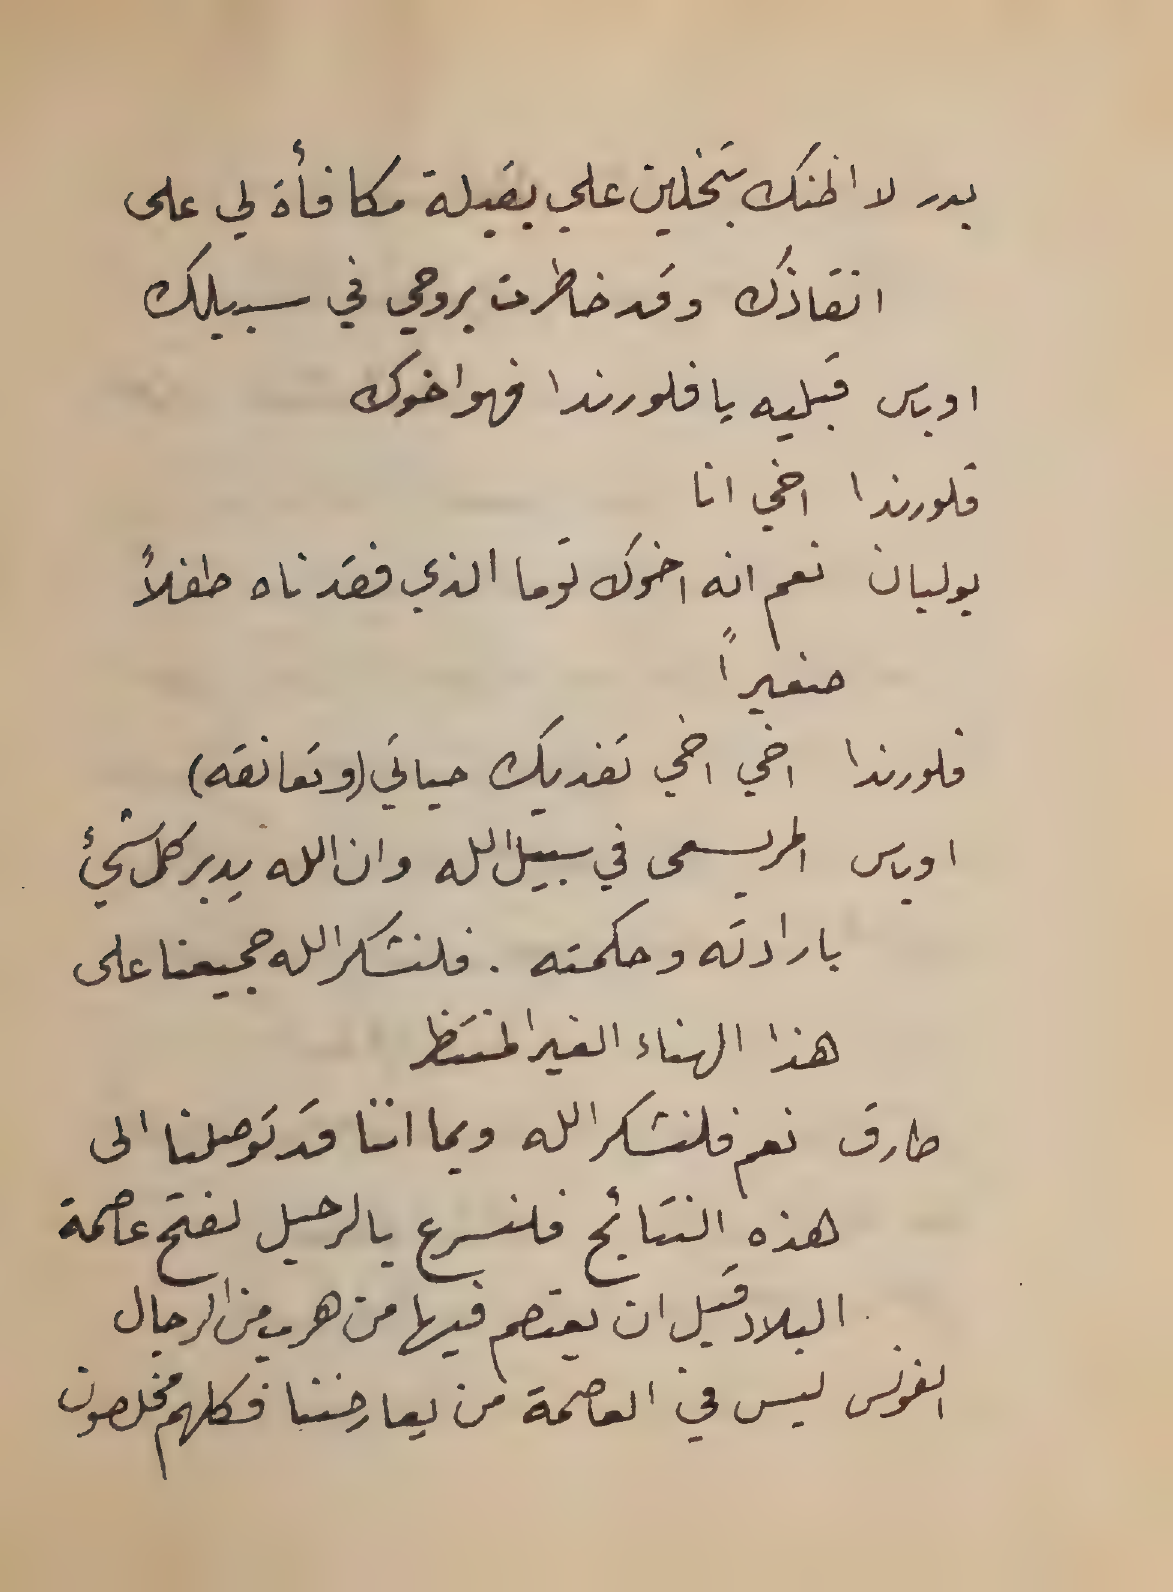 بدر لا اظنك تبخلين علي بقبلة مكافأة لي على
انقاذك وقد خاطرت بروحي في سبيلك
اوباس قبليه يا فلورندا فهو اخوك
فلورندا اخي انا
يوليان نعم انه اخوك توما الذي فقدناه طفلاً
صغيراً
فلورندا اخي اخي تفديك حياتي (وتعانقه)
اوباس المر يسعى في سبيل الله وان الله يدبر كل شيئ
بارادته وحكمته . فلنشكر الله جميعنا على
هذا الهناء الغير المنتظر
طارق نعم فلنشكر الله وبما اننا قد توصلنا الى
هذه النتائج فلنسرع بالرحيل لفتح عاصمة
البلاد قبل ان يعتصم فيها من هرب من الرجال
الفونس ليس في العاصمة من يعارضننا فكلهم مخلصون